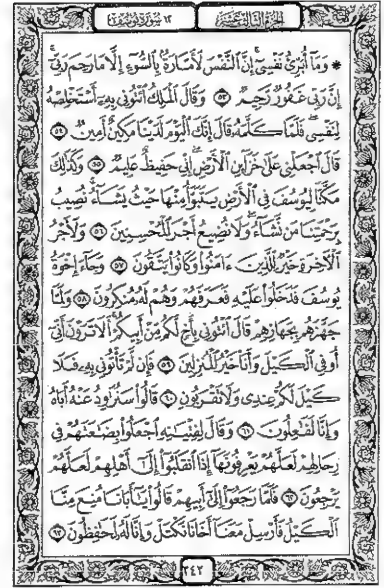 الجزء الثالث عشر ١٢ سورة يوسف
* وَمَآ أُبَرِّئُ نَفْسِيٓ إِنَّ ٱلنَّفْسَ لَأَمَّارَةُۢ بِٱلسُّوٓءِ إِلَّا مَا رَحِمَ رَبِّيٓ
إِنَّ رَبِّي غَفُورٞ رَّحِيمٞ ٥٣ وَقَالَ ٱلْمَلِكُ ٱئْتُونِي بِهِۦٓ أَسْتَخْلِصْهُ
لِنَفْسِي فَلَمَّا كَلَّمَهُۥ قَالَ إِنَّكَ ٱلْيَوْمَ لَدَيْنَا مَكِينٌ أَمِينٞ ٥٤
قَالَ ٱجْعَلْنِي عَلَىٰ خَزَآئِنِ ٱلْأَرْضِ إِنِّي حَفِيظٌ عَلِيمٞ ٥٥ وَكَذَٰلِكَ
مَكَّنَّا لِيُوسُفَ فِي ٱلْأَرْضِ يَتَبَوَّأُ مِنْهَا حَيْثُ يَشَآءُ نُصِيبُ
بِرَحْمَتِنَا مَن نَّشَآءُ وَلَا نُضِيعُ أَجْرَ ٱلْمُحْسِنِينَ ٥٦ وَلَأَجْرُ
ٱلْأٓخِرَةِ خَيْرٞ لِّلَّذِينَ ءَامَنُوا۟ وَكَانُوا۟ يَتَّقُونَ ٥٧ وَجَآءَ إِخْوَةُ
يُوسُفَ فَدَخَلُوا۟ عَلَيْهِ فَعَرَفَهُمْ وَهُمْ لَهُۥ مُنكِرُونَ ٥٨ وَلَمَّا
جَهَّزَهُم بِجَهَازِهِمْ قَالَ ٱئْتُونِي بِأَخٖ لَّكُم مِّنْ أَبِيكُمْ أَلَا تَرَوْنَ أَنِّيٓ
أُوفِي ٱلْكَيْلَ وَأَنَا۠ خَيْرُ ٱلْمُنزِلِينَ ٥٩ فَإِن لَّمْ تَأْتُونِي بِهِۦ فَلَا
كَيْلَ لَكُمْ عِندِي وَلَا تَقْرَبُونِ ٦٠ قَالُوا۟ سَنُرَٰوِدُ عَنْهُ أَبَاهُ
وَإِنَّا لَفَٰعِلُونَ ٦١ وَقَالَ لِفِتْيَٰنِهِ ٱجْعَلُوا۟ بِضَٰعَتَهُمْ فِي
رِحَالِهِمْ لَعَلَّهُمْ يَعْرِفُونَهَآ إِذَا ٱنقَلَبُوٓا۟ إِلَىٰٓ أَهْلِهِمْ لَعَلَّهُمْ
يَرْجِعُونَ ٦٢ فَلَمَّا رَجَعُوٓا۟ إِلَىٰٓ أَبِيهِمْ قَالُوا۟ يَٰٓأَبَانَا مُنِعَ مِنَّا
ٱلْكَيْلُ فَأَرْسِلْ مَعَنَآ أَخَانَا نَكْتَلْ وَإِنَّا لَهُۥ لَحَٰفِظُونَ ٦٣
٢٤٢